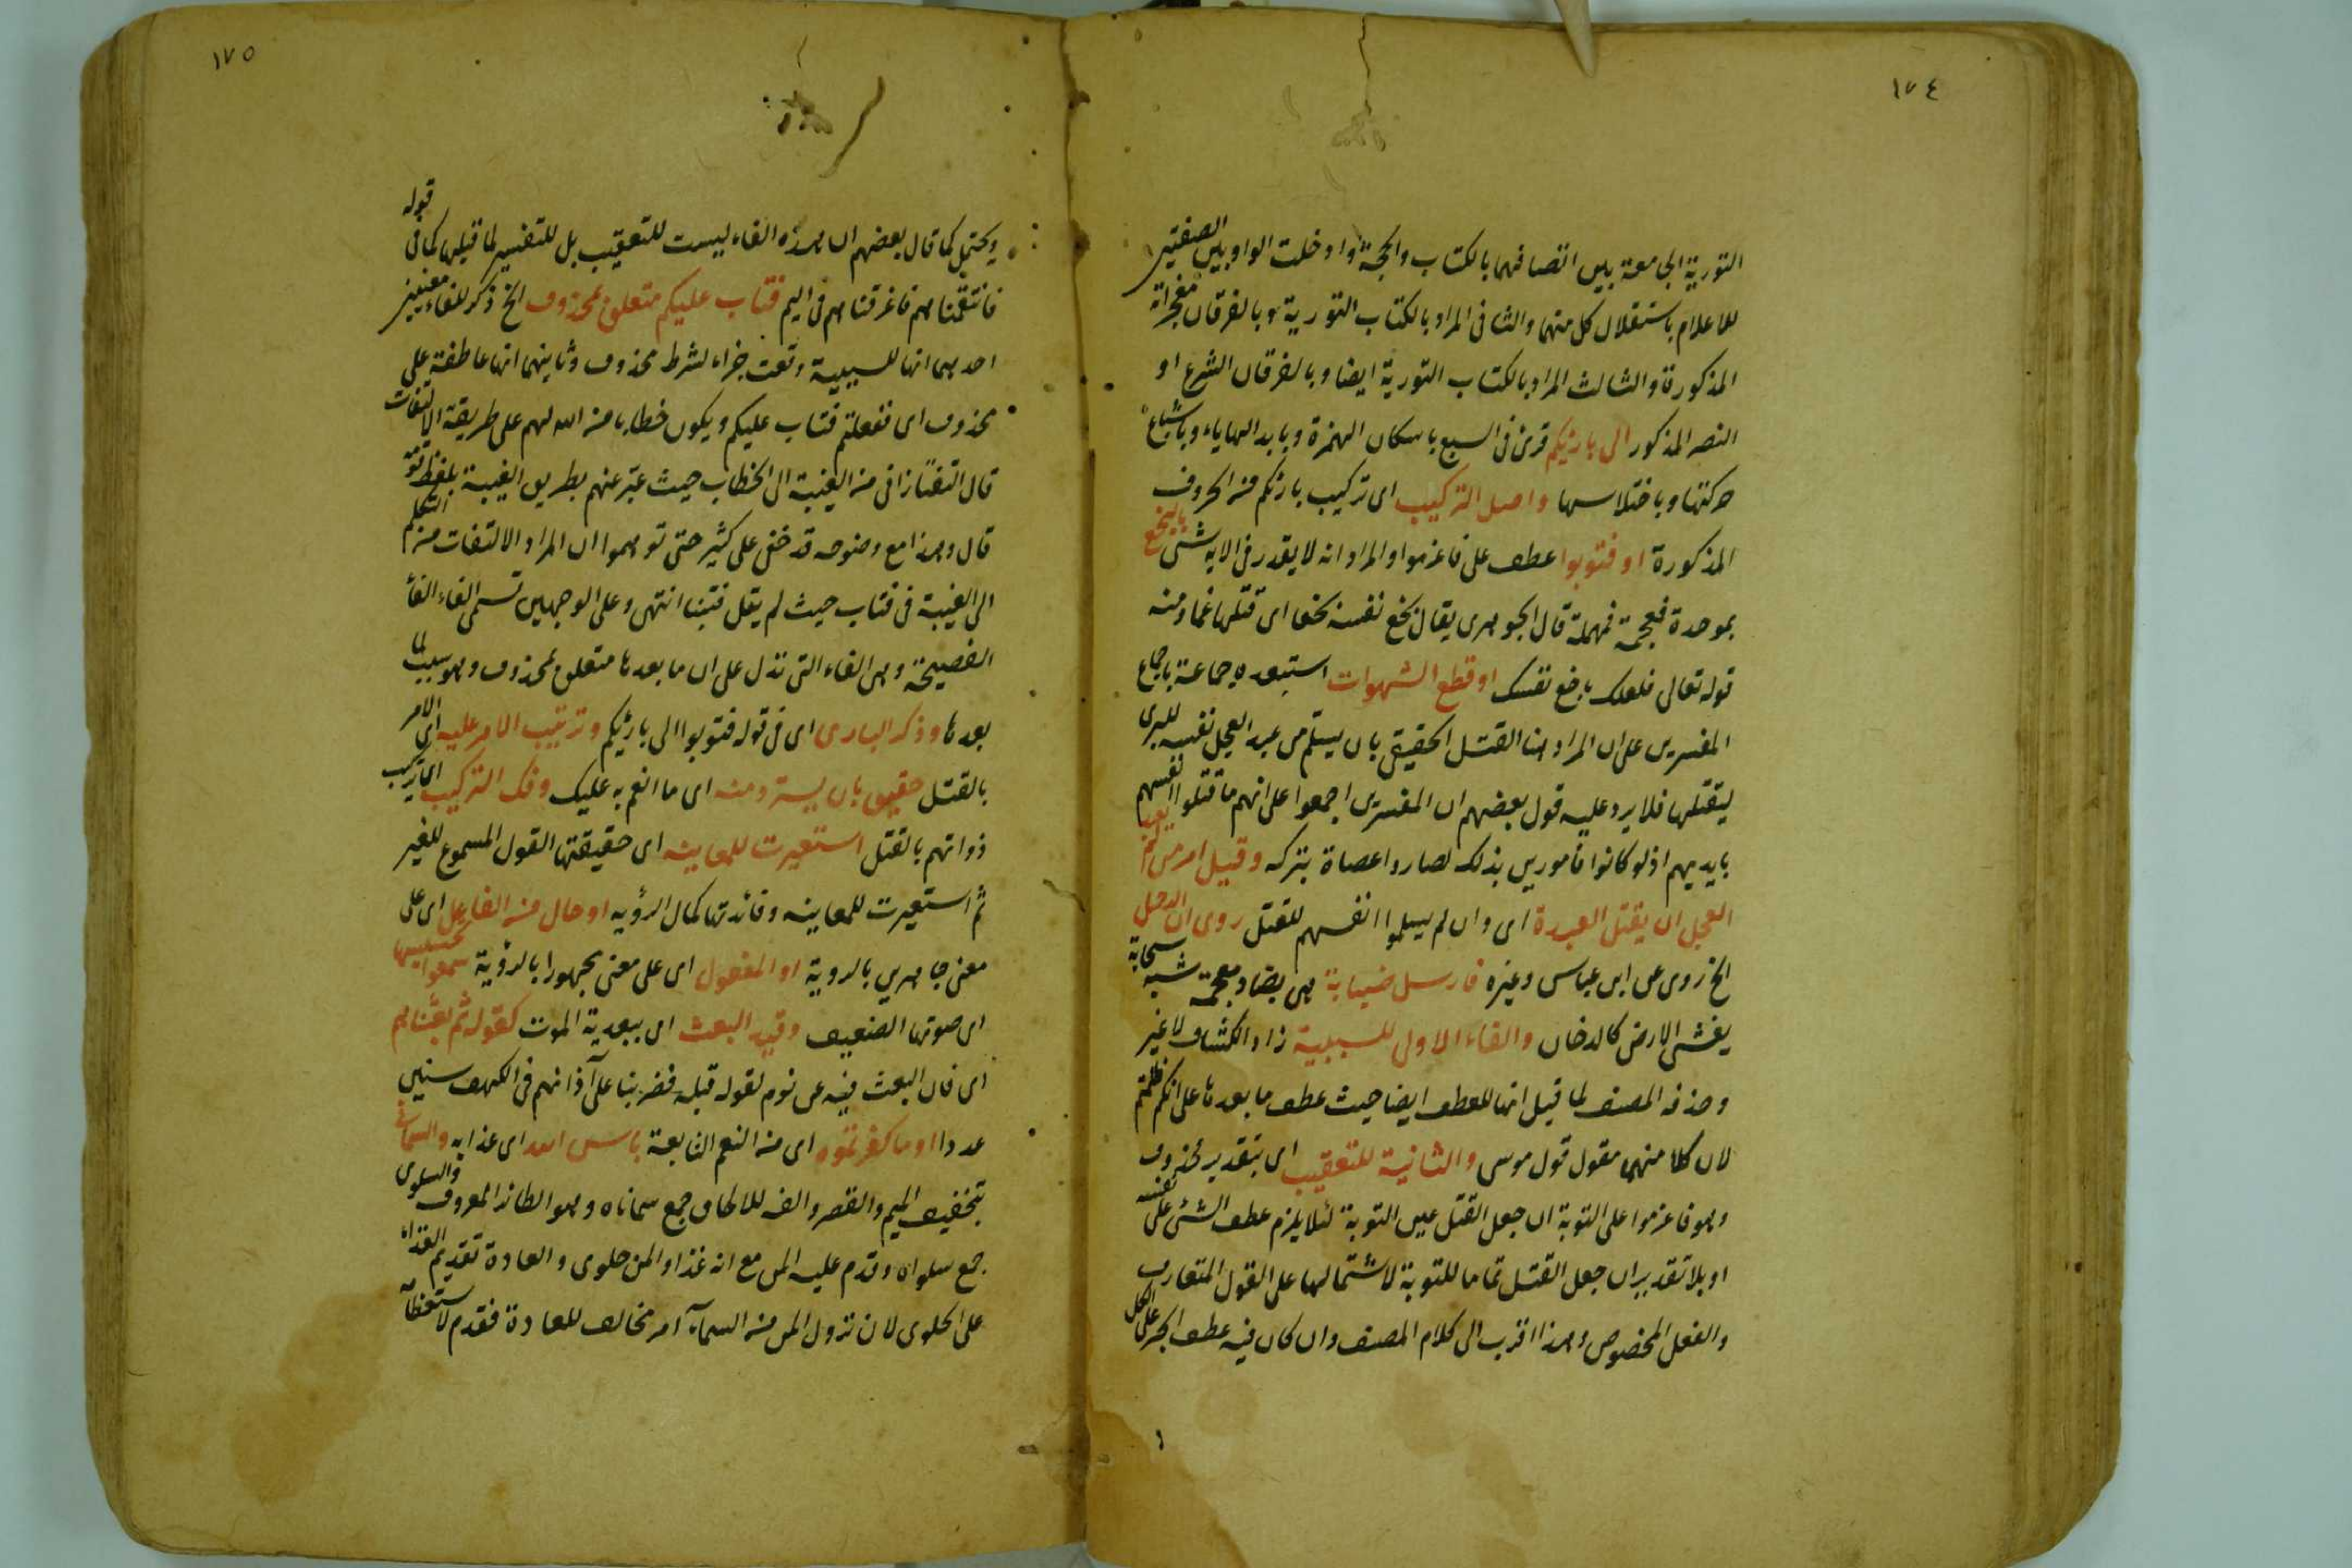 ١٧٤
التورية الجامعة بين اتصافهما بالكتاب والحجة وادخلت الواو بين الصفتين
للاعلام باستقلال كل منهما والثانى المراد بالكتاب التورية وبالفرقان معجزاته
المذكورة والثالث المراد بالكتاب التورية ايضا وبالفرقان الشرع او
النصر المذكور الى بارئكم قرئ فى السبع باسكان الهمزة وبابدالها ياء وباشباع
حركتها وباختلاسها واصل التركيب اى تركيب بارئكم من الحروف
المذكورة او فتوبوا عطف على فاعزموا والمراد انه لا يقدر فى الاية شئ بالبخع
بموحدة فمعجمة فمهملة قال الجوهرى يقال بخع نفسه بخعا اى قتلها غما ومنه
قوله تعالى فلعلك باخع نفسك او قطع الشهوات استبعده جماعة باجماع
المفسرين على ان المراد هنا القتل الحقيقى بان يستلم من عبد العجل نفسه للبرى
ليقتلها فلا يرد عليه قول بعضهم ان المفسرين اجمعوا على انهم ما قتلوا انفسهم
بايديهم اذ لو كانوا مأمورين بذلك لصاروا عصاة بتركه وقيل امر من لم يعبد
العجل ان يقتل العبدة اى وان لم يسلموا انفسهم للقتل روى ان الرجل
الخ روى عن ابن عباس وغيره فارسل ضبابة هى بضاد معجمة شبه سحابة
يغشى الارض كالدخان والفاء الاولى للسببية زاد الكشاف لا غير
وحذفه المصنف لما قيل انها للعطف ايضا حيث عطف ما بعدها على انكم ظلمتم
لان كلا منهما مقول قول موسى والثانية للتعقيب اى بتقدير محذوف
وهو فاعزموا على التوبة ان جعل القتل عين التوبة لئلا يلزم عطف الشئ على نفسه
او بلا تقدير ان جعل القتل تماما للتوبة لاشتمالها على القول المتعارف
والفعل المخصوص وهذا اقرب الى كلام المصنف وان كان فيه عطف الجزء على الكل
١٧٥
ويحتمل كما قال بعضهم ان هذه الفاء ليست للتعقيب بل للتفسير لما قبلها كما فى قوله
فانتقمنا منهم فاغرقناهم فى اليم فتاب عليكم متعلق بمحذوف الخ ذكر للفاء معنيين
احدهما انها للسببية وقعت جزاء لشرط محذوف وثانيهما انها عاطفة على
محذوف اى ففعلتم فتاب عليكم ويكون خطابا من الله لهم على طريقة الالتفات
قال التفتازانى من الغيبة الى الخطاب حيث عبر عنهم بطريق الغيبة بلفظ قومه
قال وهذا مع وضوحه قد خفى على كثير حتى توهموا ان المراد الالتفات من التكلم
الى الغيبة فى فتاب حيث لم يقل فتبنا انتهى وعلى الوجهين تسمى الفاء الفأ
الفصيحة وهى الفاء التى تدل على ان ما بعدها متعلق بمحذوف وهو سبب لما
بعدها وذكر البارى اى فى قوله فتوبوا الى بارئكم وترتيب الامر عليه اى الامر
بالقتل حقيق بان يسترد منه اى ما انعم به عليك وفك التركيب اى تركيب
ذواتهم بالقتل استعيرت للمعاينه اى حقيقتها القول المسموع للغير
ثم استعيرت للمعاينه وفائدتها كمال الرؤيه او حال من الفاعل اى على
معنى جاهرين بالروية او المفعول اى على معنى مجهورا بالرؤية سمعوا حسيسها
اى صوتها الضعيف وقيد البعث اى ببعدية الموت كقوله ثم بعثناهم
اى فان البعث فيه عن نوم لقوله قبله فضربنا على آذانهم فى الكهف سنين
عددا او ما كفرتموه اى من النعم التابعة باس الله اى عذابه والسمانى
بتخفيف الميم والقصر والفه للالحاق جمع سماناه وهو الطائر المعروف والسلوى
جمع سلواه وقدم عليه المن مع انه غذاء والمن حلوى والعادة تقديم الغذاء
على الحلوى لان نزول المن من السمآء امر مخالف للعادة فقدم لاستعظامه